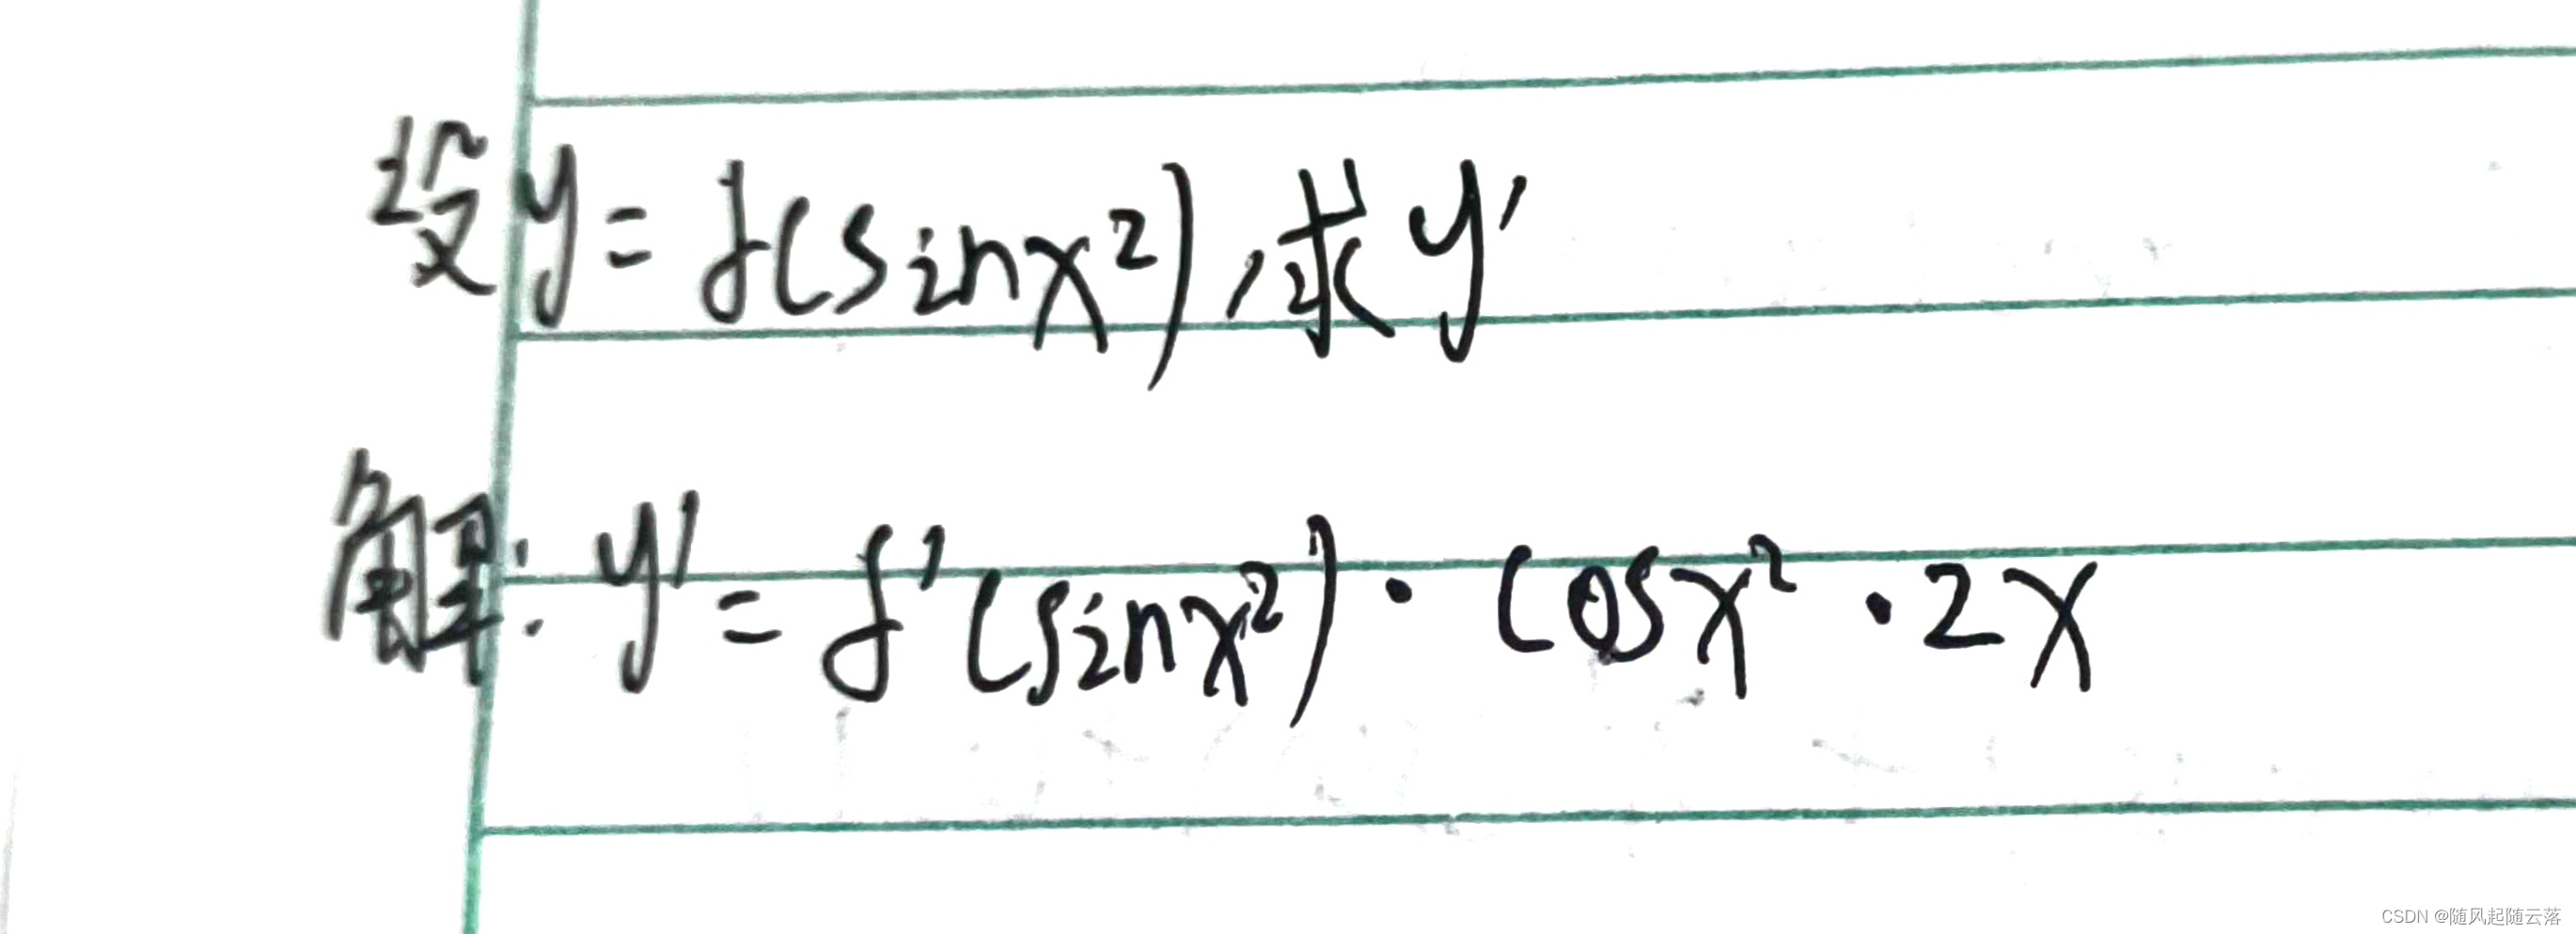 设y=f(sinx²),求y'
解:y'=f'(sinx²)·cosx²·2x
CSDN @随风起随云落